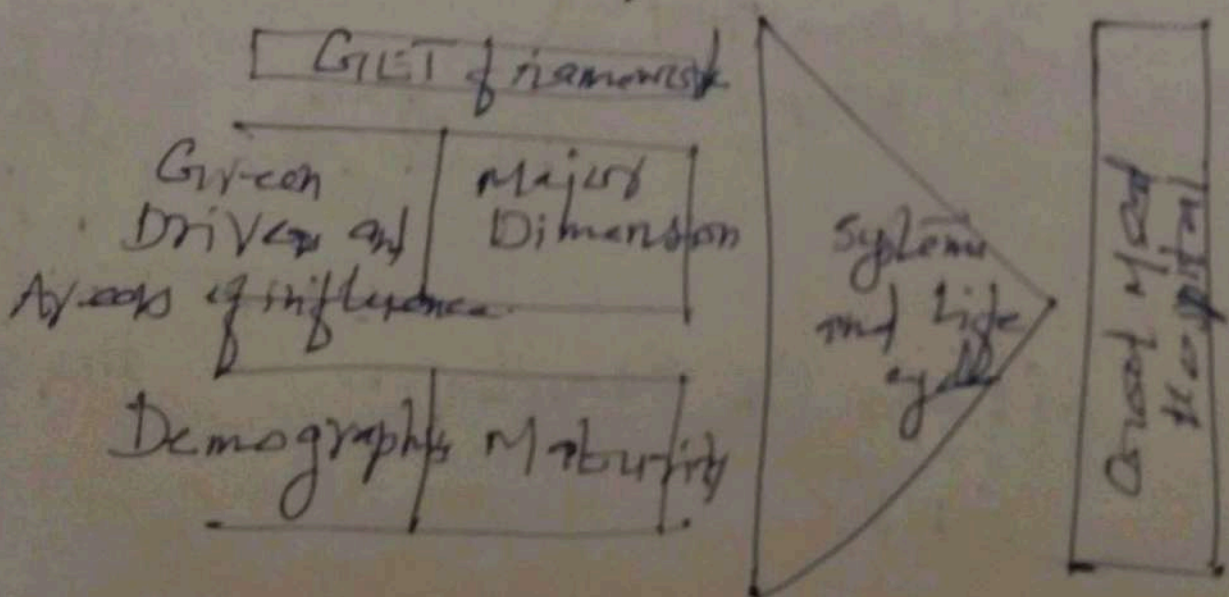 GET framework
Green
Drivers and
Areas of influence
Major
Dimension
Demographs
Maturity
Systems
and Life
Hospital